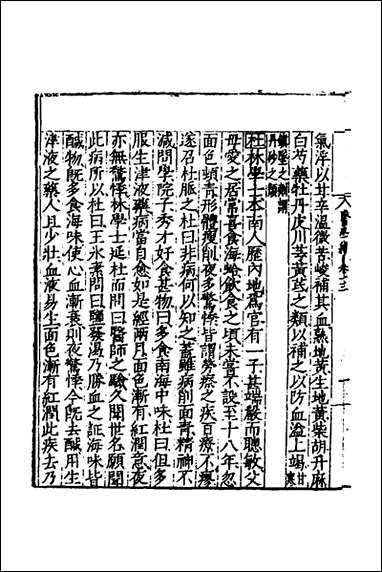 氣浮以甘辛溫微苦峻補其血熟地黃生地黃柴胡丹麻
白芍藥牡丹皮川芎黃芪之類以補之以防血溢上竭甘寒
鎮墜之劑謂
丹砂之類
杜林學士本南人歷內地爲官有一子甚端嚴而聰敏父
母愛之居常喜食海蛤飲食之頃未嘗不設至十八年忽
面色頓青形體瘦削夜多驚悸皆謂勞瘵之疾百療不瘳
遂召杜脈之杜曰非病何以知之蓋雖病削面青精神不
減問學院子秀才好食甚物曰多食南海中味杜曰但多
服生津液藥病當自愈如是經兩月面色漸有紅潤意夜
亦無驚悸林學士延杜而問曰醫師之驗久聞世名願聞
此病所以杜曰王冰素問曰鹽發渴乃勝血之証海味皆
醎物既多食海味使心血漸衰則夜驚悸今既去醎用生
津液之藥人且少壯血液易生面色漸有紅潤此疾去乃